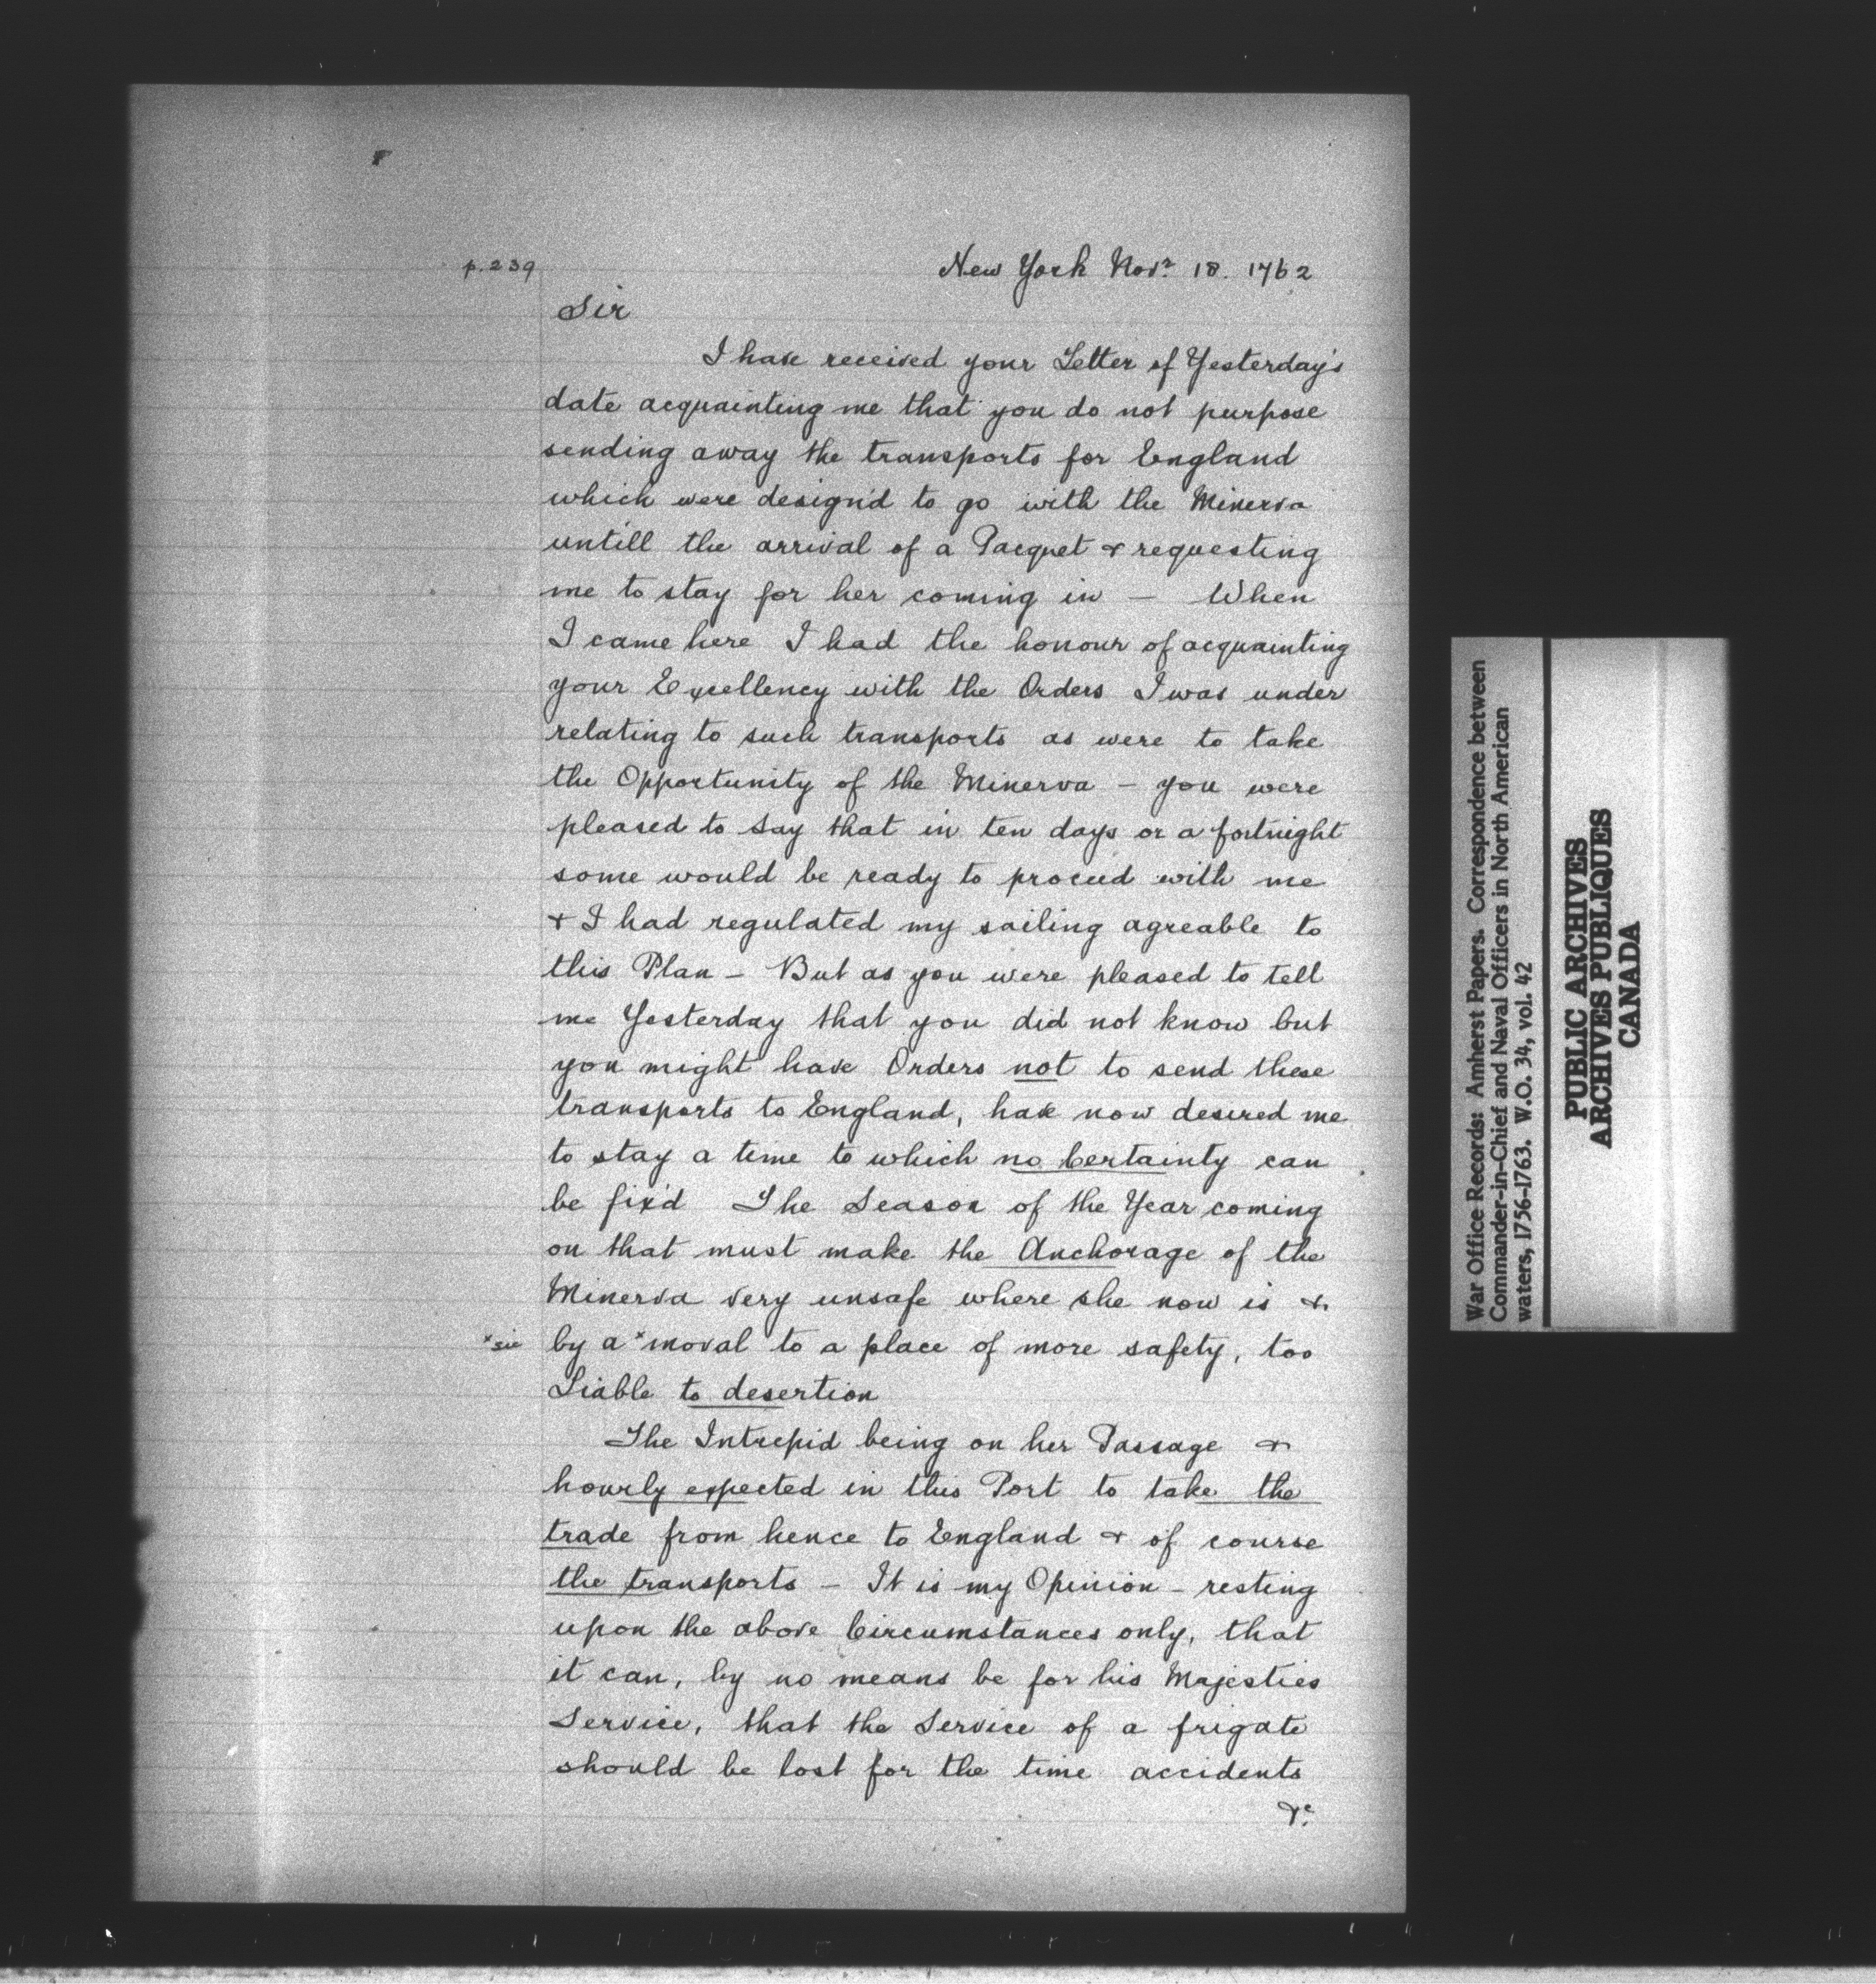 p. 239
New York Novr. 18. 1762
Sir
I have received your Letter of Yesterday's
date acquainting me that you do not purpose
sending away the transports for England
which were design'd to go with the Minerva
untill the arrival of a Pacquet & requesting
me to stay for her coming in — When
I came here I had the honour of acquainting
your Excellency with the Orders I was under
relating to such transports as were to take
the Opportunity of the Minerva – you were
pleased to say that in ten days or a fortnight
some would be ready to proceed with me
& I had regulated my sailing agreable to
this Plan – But as you were pleased to tell
me Yesterday that you did not know but
you might have Orders not to send these
transports to England, have now desired me
to stay a time to which no Certainty can
be fix'd The Season of the Year coming
on that must make the Anchorage of the
Minerva very unsafe where she now is &
*sic by a *moval to a place of more safety, too
Liable to desertion
The Intrepid being on her Passage &
hourly expected in this Port to take the
trade from hence to England & of course
the transports – It is my Opinion – resting
upon the above Circumstances only, that
it can, by no means be for his Majesties
Service, that the Service of a frigate
should be lost for the time accidents
&c.
War Office Records: Amherst Papers. Correspondence between
Commander-in-Chief and Naval Officers in North American
waters, 1756-1763. W.O. 34, vol. 42
PUBLIC ARCHIVES
ARCHIVES PUBLIQUES
CANADA